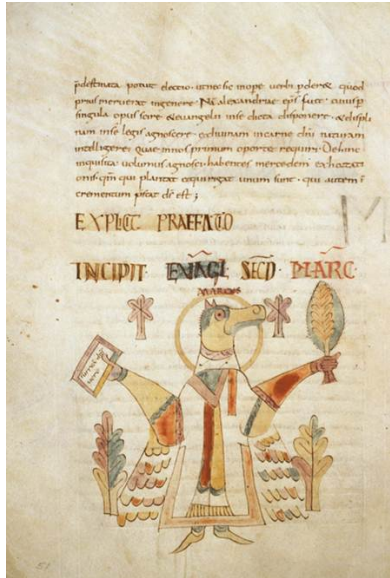 p̄destinata potuit electio. ut nec sic inope verbi p̄deret quod
prius meruerat in genere. Nā alexandriae ep̄s fuit. cuius p̄
singula opus scire & euangelii in se dicta disponere. & discipli
nam in se legis agnoscere. & diuinam in carne dn̄i naturam
intellegere quae in nos primum oportet requiri. Dehinc
inquisita volumus agnosci habentes mercedem exhortati
onis. qm̄ qui plantat et qui rigat unum sunt. qui autem
crementum p̄stat d̄s est;
EXPLICIT PRAEFATIO
INCIPIT EVÃGL SECD̄ MARC
MARCUS